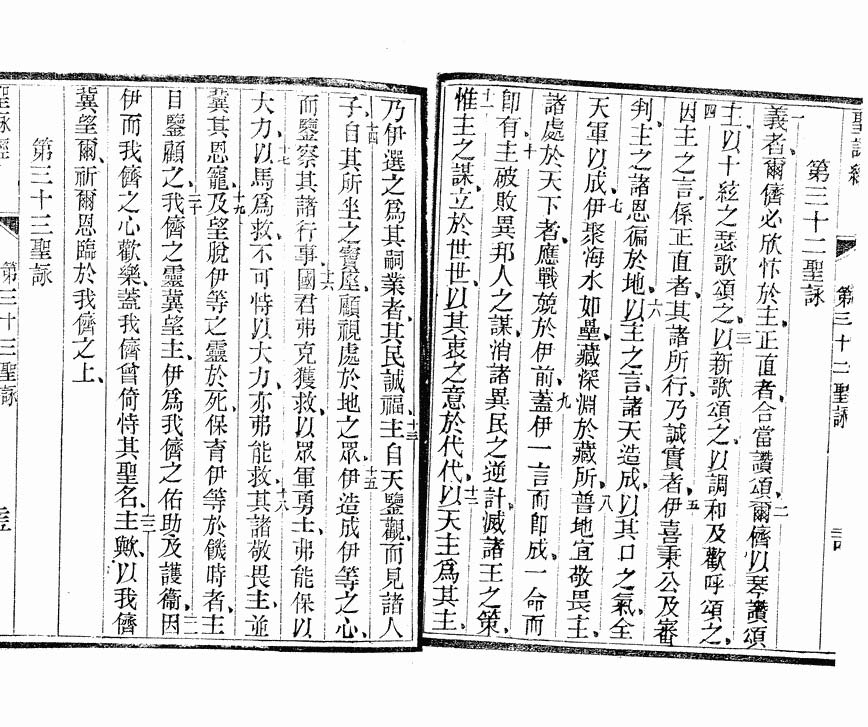 聖詠經
第三十二聖詠
第三十二聖詠
一
義者爾儕必欣忭於主正直者合當讚頌二爾儕以琴讚頌
主以十絃之瑟歌頌之三以新歌頌之以調和及歡呼頌之
四因主之言係正直者其諸所行乃誠實者五伊喜秉公及審
判主之諸恩徧於地六以主之言諸天造成以其口之氣全
天軍以成七伊聚海水如壘藏深淵於藏所八普地宜敬畏主
諸處於天下者應戰兢於伊前九蓋伊一言而即成一命而
即有十主破敗異邦人之謀消諸異民之逆計滅諸王之策
十一惟主之謀立於世世以其衷之意於代代十二以天主為其主
乃伊選之為其嗣業者其民誠福十三主自天鑒觀而見諸人
子十四自其所坐之寶座顧視處於地之眾十五伊造成伊等之心
而鑒察其諸行事十六國君弗克獲救以眾軍勇士弗能保以
大力十七以馬為救不可恃以大力亦弗能救十八其諸敬畏主並
冀其恩寵十九及望脫伊等之靈於死保育伊等於饑時者主
目鑒顧之二十我儕之靈冀望主伊為我儕之佑助及護衞二一因
伊而我儕之心歡樂蓋我儕曾倚恃其聖名二二主歟以我儕
冀望爾祈爾恩臨於我儕之上
第三十三聖詠
聖詠經
第三十三聖詠